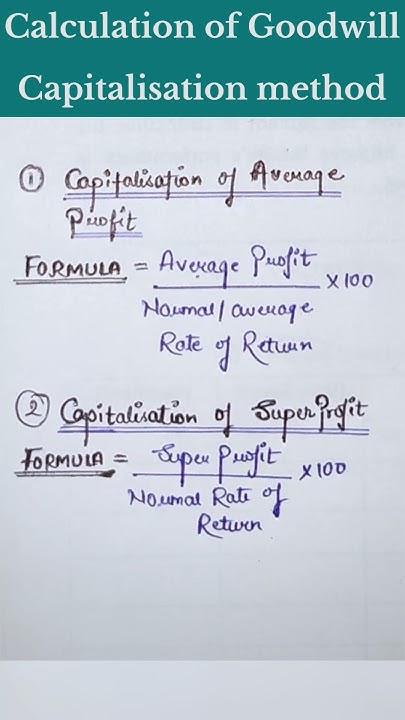 Calculation of Goodwill
Capitalisation method
① Capitalisation of Average
Profit
FORMULA = Average Profit × 100
Normal / average
Rate of Return
② Capitalisation of Super Profit
FORMULA = Super Profit × 100
Normal Rate of
Return